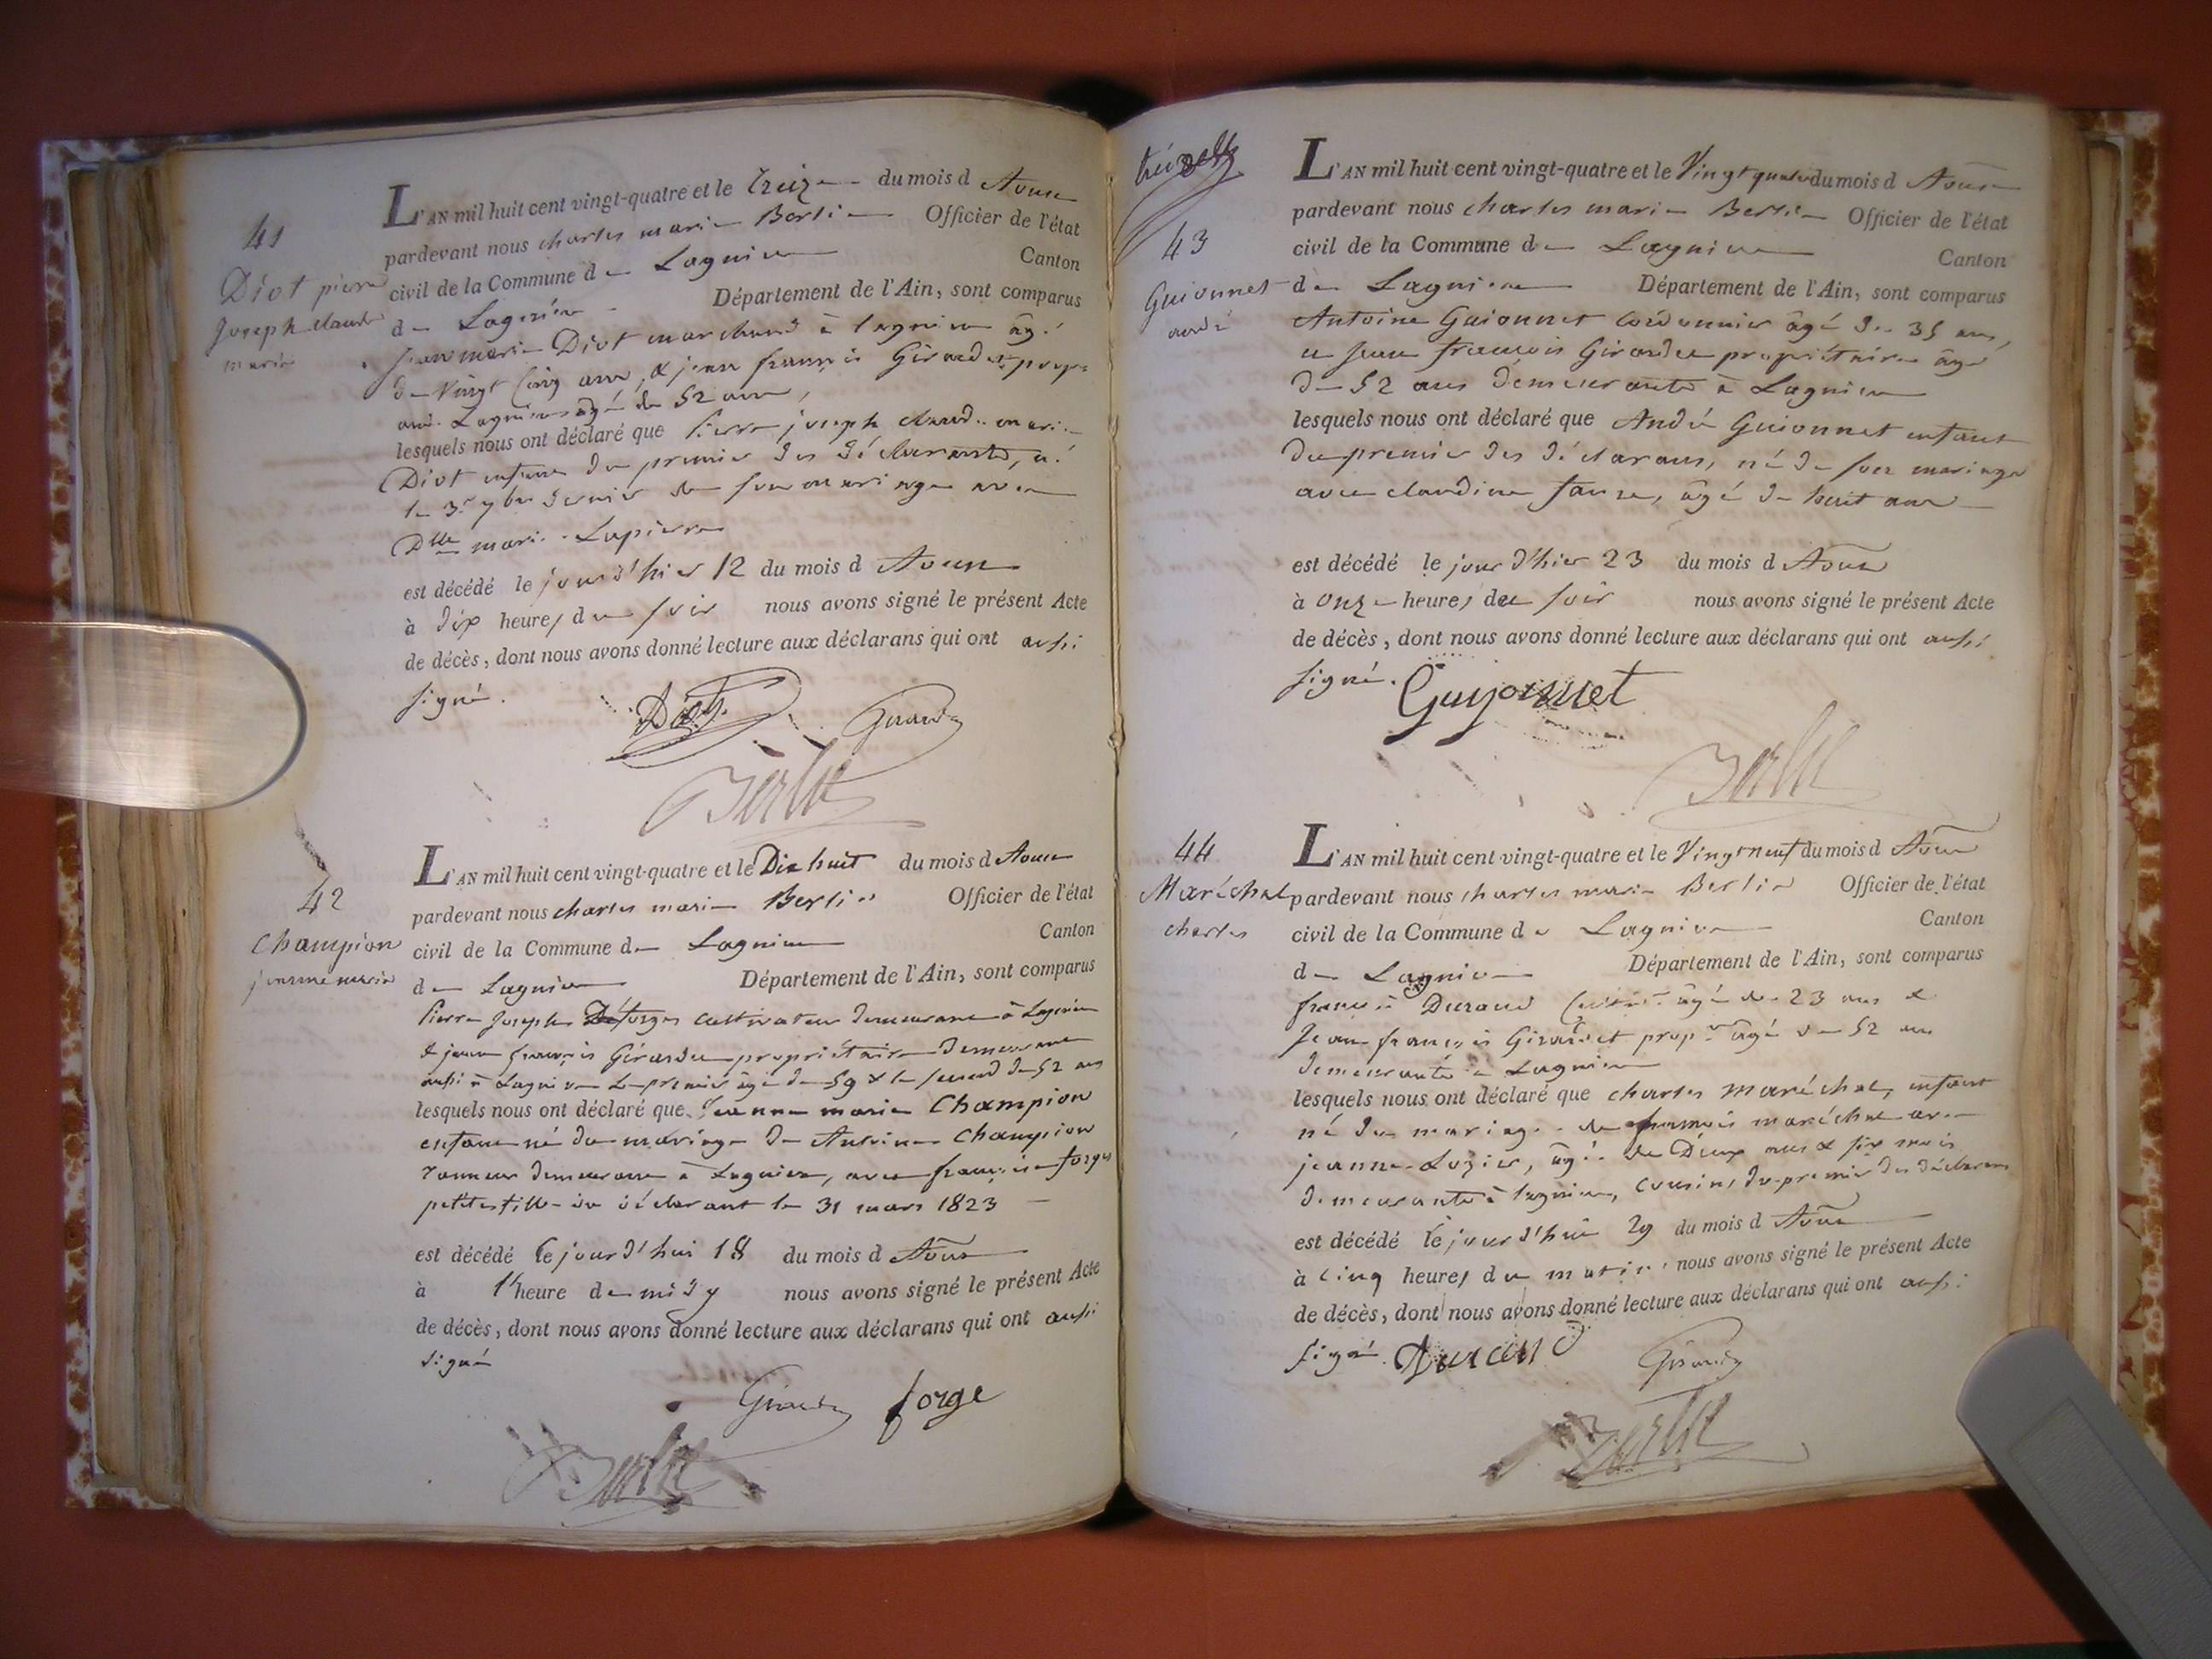 41
Diot pierre
Joseph claude
marie
L'AN mil huit cent vingt-quatre et le treize du mois d Aoust
pardevant nous charles marie Berlie Officier de l'état
civil de la Commune de Lagnieu Canton
de Lagnieu Département de l'Ain, sont comparus
jean marie Diot marchand à lagnieu âgé
de vingt cinq ans, & jean françois Girardet propre
aud. Lagnieu âgé de 52 ans,
lesquels nous ont déclaré que Pierre joseph claude marie
Diot enfant du premier des déclarants, né
le 3e 7bre dernier de son mariage avec
Dlle marie Lapierre
est décédé le jour d'hier 12 du mois d Aoust
à dix heures du soir nous avons signé le présent Acte
de décès, dont nous avons donné lecture aux déclarans qui ont aussi
signé.
Diot Girardet
Berlie
42
Champion
jeanne marie
L'AN mil huit cent vingt-quatre et le Dix huit du mois d Aoust
pardevant nous charles marie Berlie Officier de l'état
civil de la Commune de Lagnieu Canton
de Lagnieu Département de l'Ain, sont comparus
Pierre Joseph forges cultivateur demeurant à Lagnieu
& jean françois Girardet propriétaire demeurant
aussi à Lagnieu le premier âgé de 59 & le second de 52 ans
lesquels nous ont déclaré que Jeanne marie Champion
enfant né du mariage de Antoine Champion
Tanneur demeurant à Lagnieu, avec françoise forges
petite fille du déclarant le 31 mars 1823
est décédé le jour d'hui 18 du mois d Aoust
à l'heure de midy nous avons signé le présent Acte
de décès, dont nous avons donné lecture aux déclarans qui ont aussi
signé
Girardet forge
Berlie
43
Guionnet
andré
L'AN mil huit cent vingt-quatre et le Vingt quatre du mois d Aoust
pardevant nous charles marie Berlie Officier de l'état
civil de la Commune de Lagnieu Canton
de Lagnieu Département de l'Ain, sont comparus
Antoine Guionnet cordonnier âgé de 35 ans,
et Jean françois Girardet propriétaire âgé
de 52 ans demeurants à Lagnieu
lesquels nous ont déclaré que André Guionnet enfant
du premier des déclarans, né de son mariage
avec claudine faure, âgé de huit ans
est décédé le jour d'hier 23 du mois d Aoust
à onze heures du soir nous avons signé le présent Acte
de décès, dont nous avons donné lecture aux déclarans qui ont aussi
signé. Guyonnet
Berlie
44
Maréchal
charles
L'AN mil huit cent vingt-quatre et le Vingt neuf du mois d Aoust
pardevant nous charles marie Berlie Officier de l'état
civil de la Commune de Lagnieu Canton
de Lagnieu Département de l'Ain, sont comparus
françois Durand âgé de 23 ans &
Jean françois Girardet propre âgé de 52 ans
demeurants à Lagnieu
lesquels nous ont déclaré que charles maréchal, enfant
né du mariage de françois maréchal avec
jeanne Lozier, âgé de Deux ans & six mois
demeurants à lagnieu, cousins du premier des déclarans
est décédé le jour d'hui 29 du mois d Aoust
à cinq heures du matin nous avons signé le présent Acte
de décès, dont nous avons donné lecture aux déclarans qui ont aussi
signé. Durand Girardet
Berlie